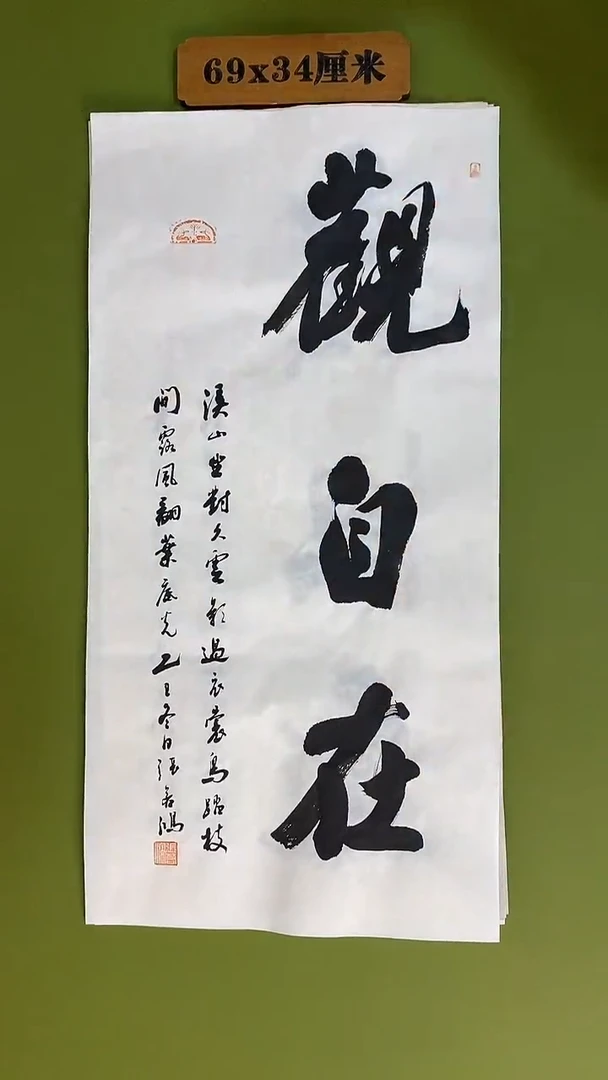 69x34厘米
觀自在
溪山坐對久雲影過衣裳鳥踏枝
間露風翻葉底光乙巳冬日張鴻